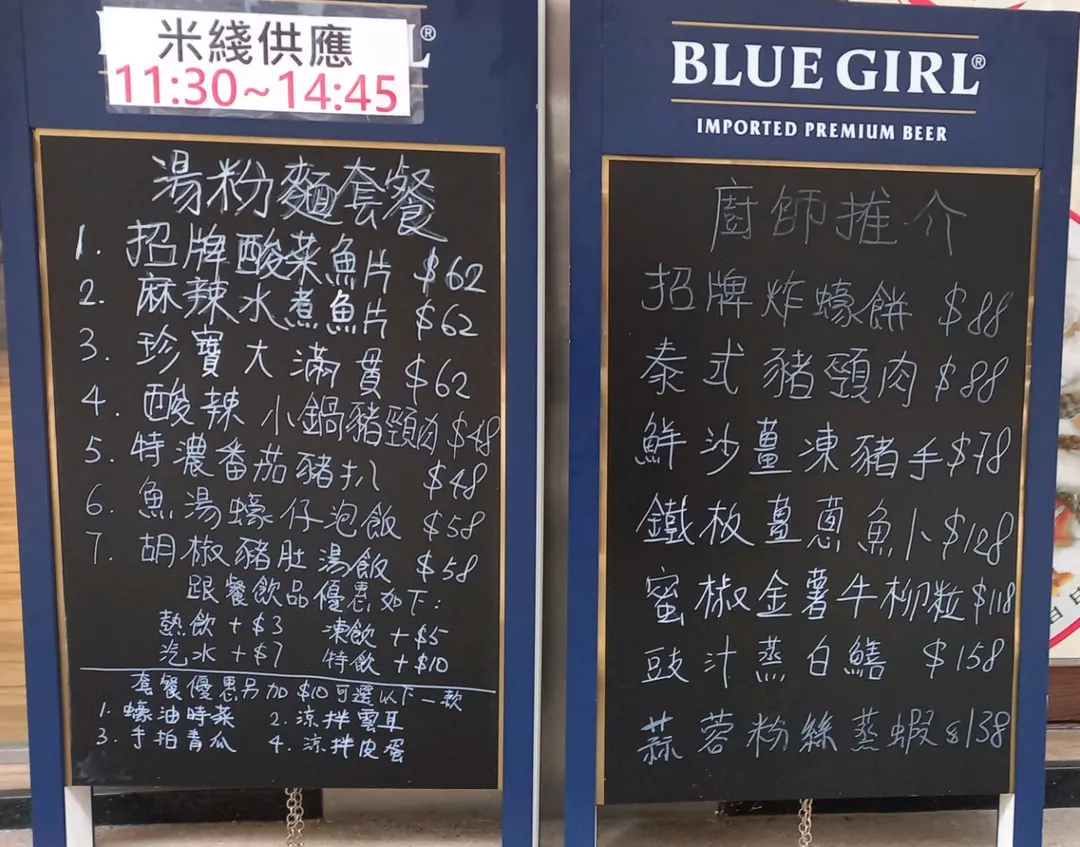 米綫供應
11:30~14:45
湯粉麵套餐
1. 招牌酸菜魚片 $62
2. 麻辣水煮魚片 $62
3. 珍寶大滿貫 $62
4. 酸辣小鍋豬頸肉 $48
5. 特濃番茄豬扒 $48
6. 魚湯蠔仔泡飯 $58
7. 胡椒豬肚湯飯 $58
跟餐飲品優惠如下:
熱飲 + $3 凍飲 + $5
汽水 + $7 特飲 + $10
套餐優惠另加 $10 可選以下一款
1. 蠔油時菜 2. 涼拌雲耳
3. 手拍青瓜 4. 涼拌皮蛋
BLUE GIRL®
IMPORTED PREMIUM BEER
廚師推介
招牌炸蠔餅 $88
泰式豬頸肉 $88
鮮沙薑凍豬手 $78
鐵板薑蔥魚卜 $128
蜜椒金薯牛柳粒 $118
豉汁蒸白鱔 $158
蒜蓉粉絲蒸蝦 $138